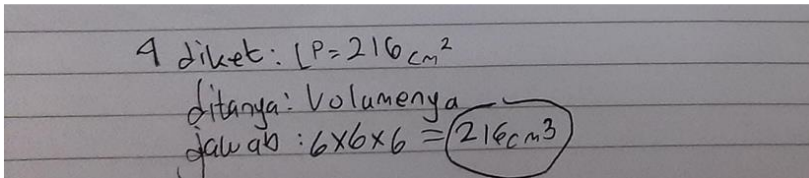 4 diket: LP = 216 cm²
ditanya: Volumenya
jawab : 6x6x6 = 216cm3